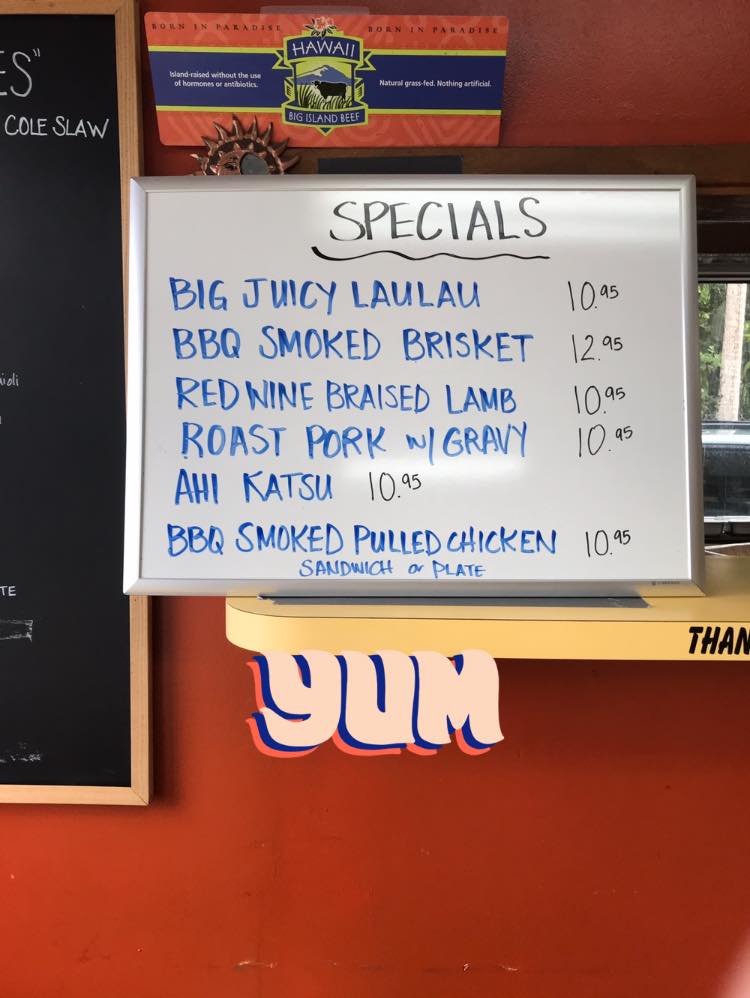 BORN IN PARADISE BORN IN PARADISE
HAWAII
Island-raised without the use
of hormones or antibiotics.
Natural grass-fed. Nothing artificial.
BIG ISLAND BEEF
ES"
COLE SLAW
SPECIALS
BIG JUICY LAULAU 10.95
BBQ SMOKED BRISKET 12.95
RED WINE BRAISED LAMB 10.95
ROAST PORK W/ GRAVY 10.95
AHI KATSU 10.95
BBQ SMOKED PULLED CHICKEN 10.95
SANDWICH or PLATE
TE
THAN
YUM